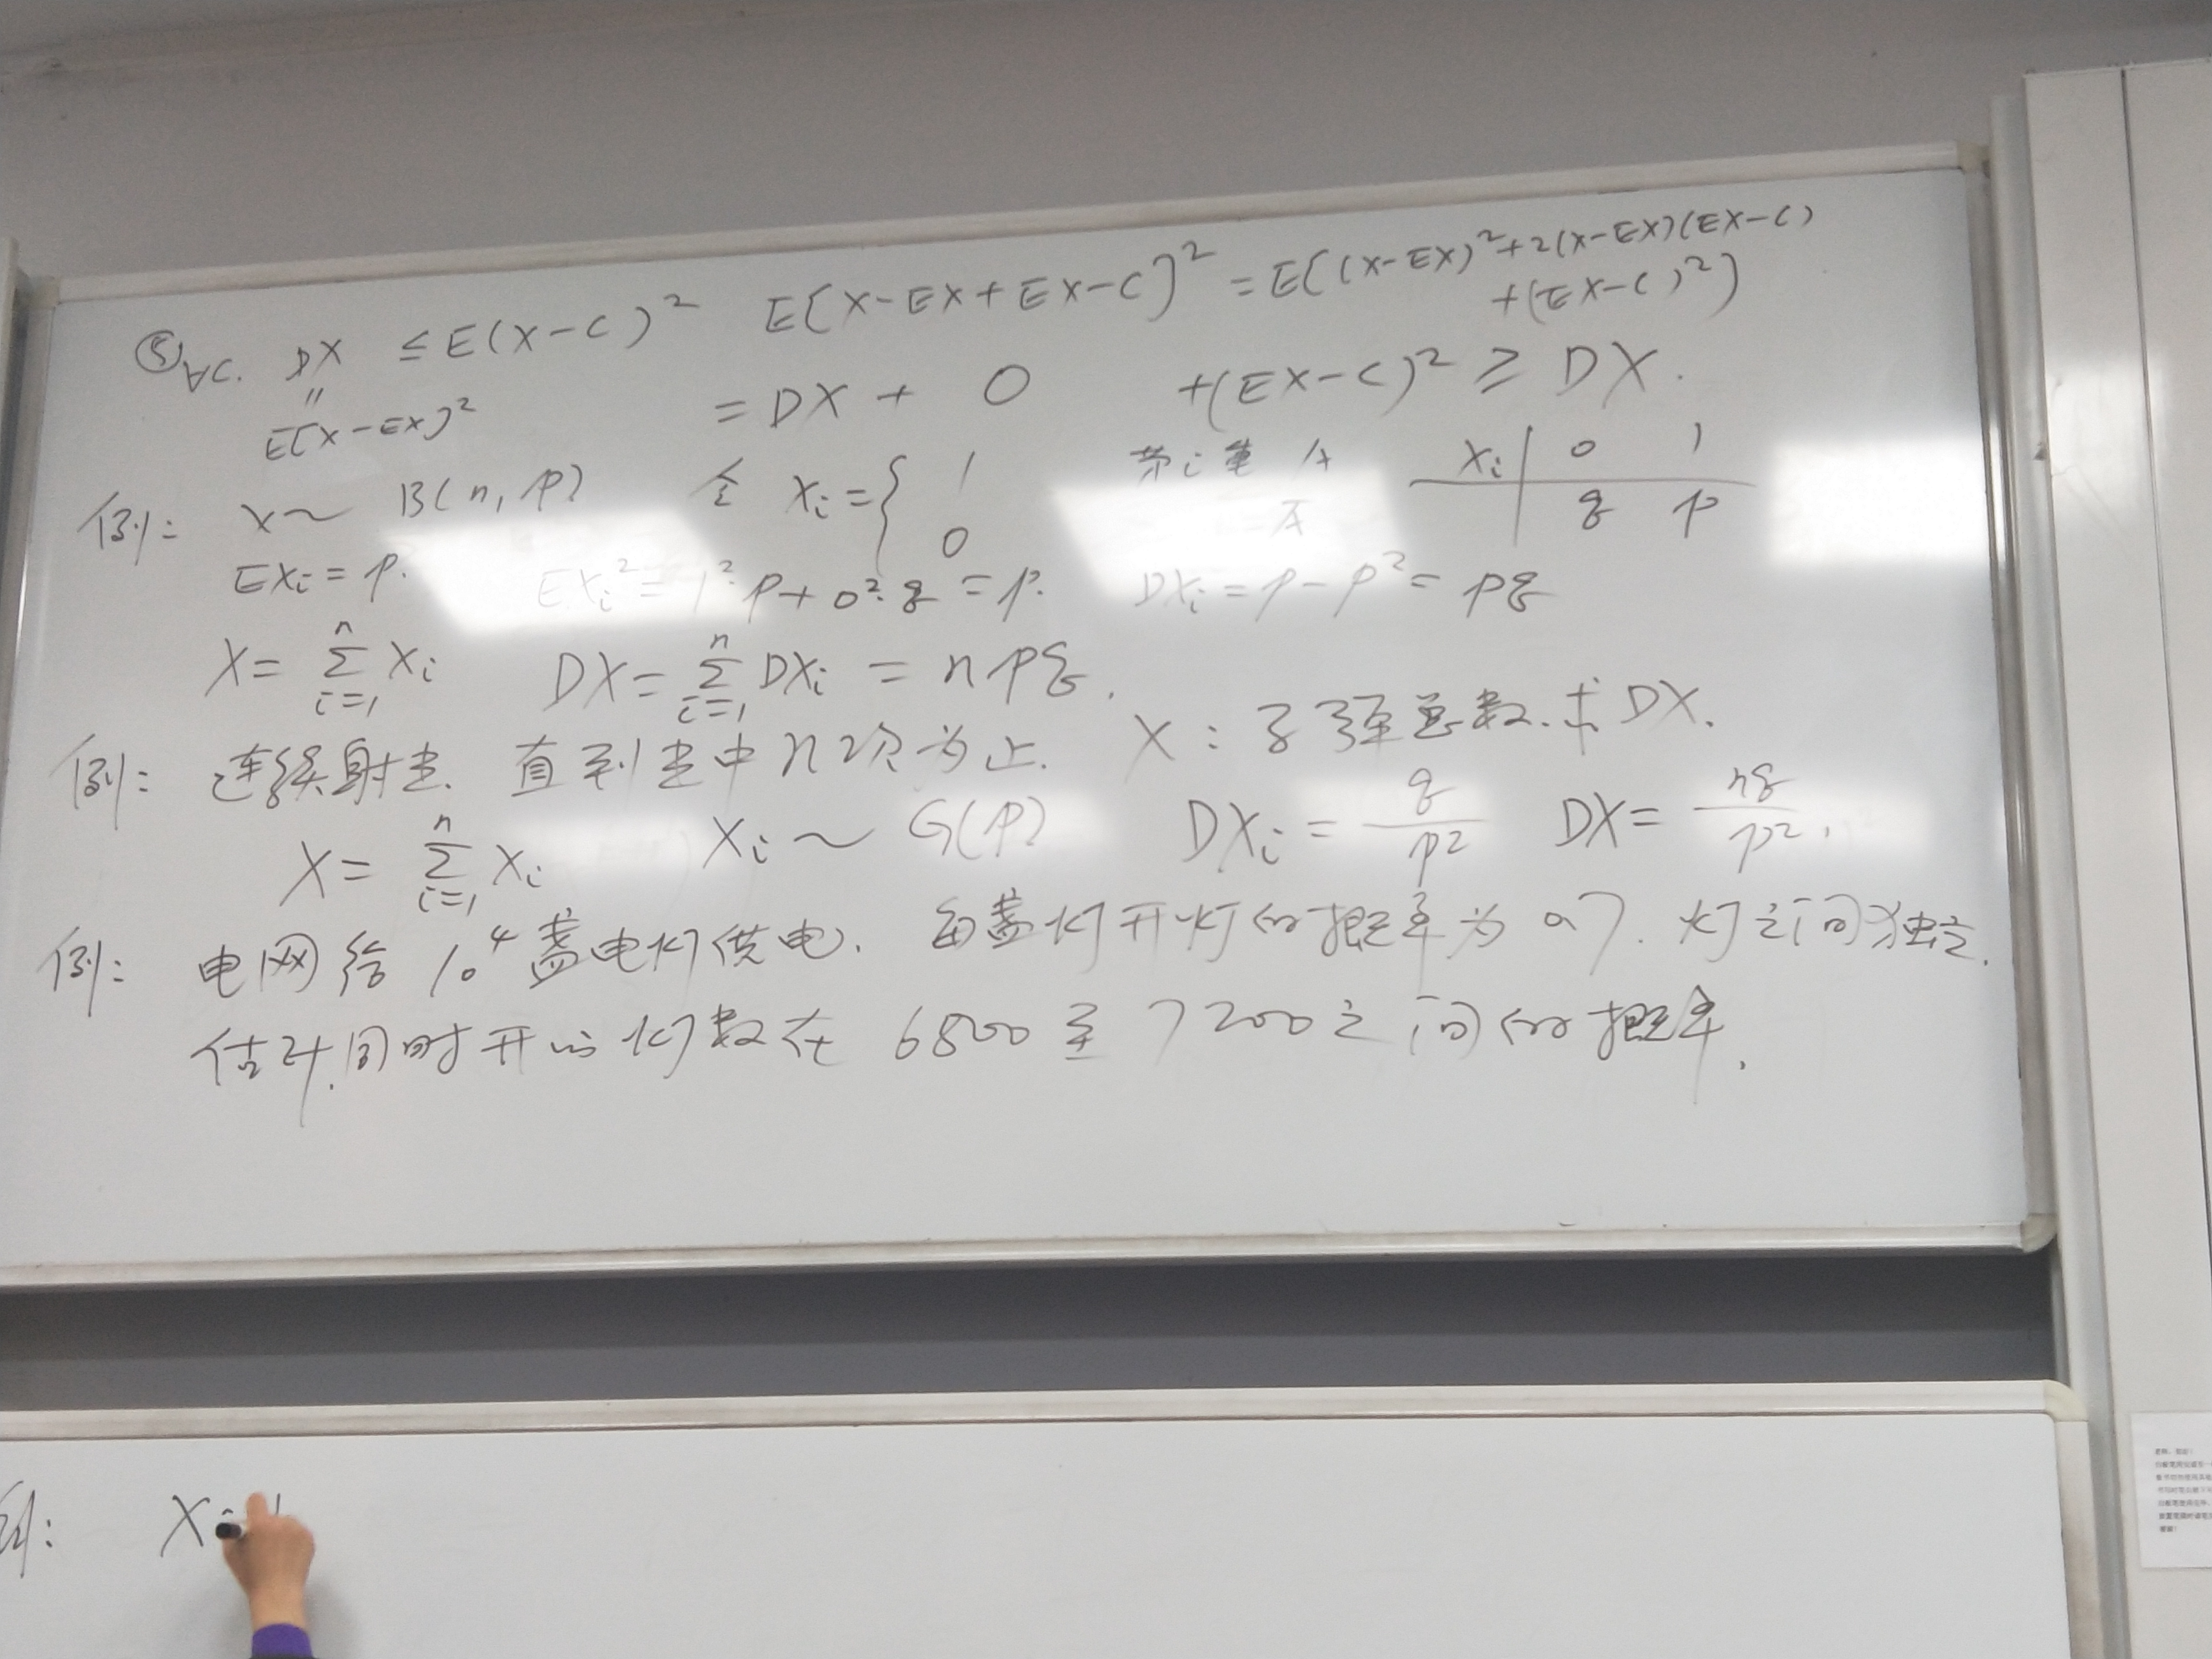 ⑤ ∀C. DX ≤ E(X-C)² E[X-EX+EX-C]² = E[(X-EX)²+2(X-EX)(EX-C)
+(EX-C)²]
" = DX + 0 +(EX-C)² ≥ DX.
E[X-EX]²
例: X~ B(n,p) 令 Xi={ 1 第i A Xi | 0 1
0 Ā q p
EXi=p. EXi²=1²·p+0²·q=p. DXi=p-p²=pq
X= Σ_{i=1}^{n} Xi DX= Σ_{i=1}^{n} DXi = npq.
例: 连续射击. 直到击中n次为止. X: 子弹总数. 求DX.
X= Σ_{i=1}^{n} Xi Xi ~ G(p) DXi = q/p² DX= nq/p².
例: 电网给10⁴盏电灯供电. 每盏灯开灯的概率为0.7. 灯之间独立.
估计同时开的灯数在6800至7200之间的概率.
例: X